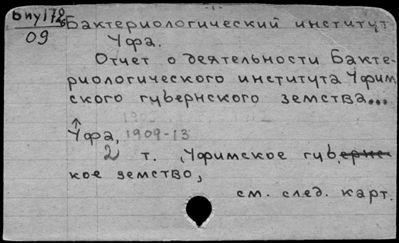 Бактериологический институт
09
Уфа.
Отчет о деятельности Бакте-
риологического института Уфим
ского губернского земства...
Уфа, 1909-13
2 т. Уфимское губ.ернс-
кое земство,
см. след. карт.